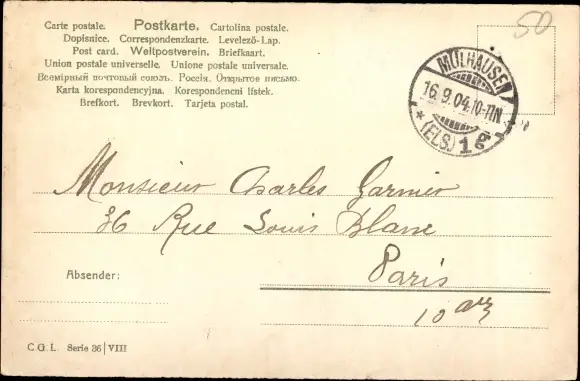 50
Carte postale. Postkarte. Cartolina postale.
Dopisnice. Correspondenzkarte. Levelező-Lap.
Post card. Weltpostverein. Briefkaart.
Union postale universelle. Unione postale universale.
Всемірный почтовый союзъ. Россія. Открытое письмо.
Karta korespondencyjna. Korespondencni lístek.
Brefkort. Brevkort. Tarjeta postal.
MÜLHAUSEN
16.9.04.10-11N.
* (ELS) 1
Monsieur Charles Garnier
36 Rue Louis Blanc
Paris
Absender:
10
C.G.L. Serie 36 | VIII